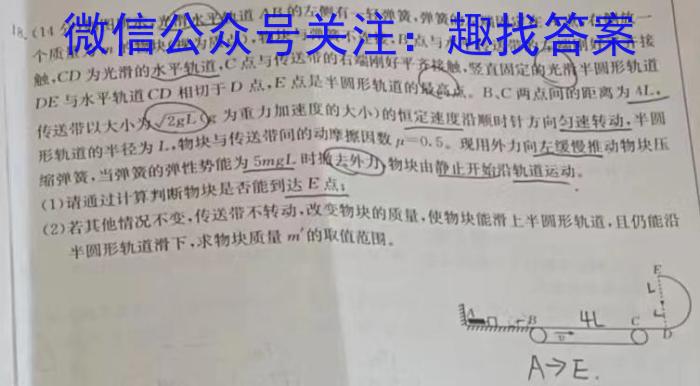 18.(14分)
微信公众号关注：趣找答案
触,CD为光滑的水平轨道,C点与传送带的右端刚好平齐接触,竖直固定的光滑半圆形轨道
DE与水平轨道CD相切于D点,E点是半圆形轨道的最高点。B、C两点间的距离为4L,
传送带以大小为√2gL(g为重力加速度的大小)的恒定速度沿顺时针方向匀速转动,半圆
形轨道的半径为L,物块与传送带间的动摩擦因数μ=0.5。现用外力向左缓慢推动物块压
缩弹簧,当弹簧的弹性势能为5mgL时撤去外力,物块由静止开始沿轨道运动。
(1)请通过计算判断物块是否能到达E点;
(2)若其他情况不变,传送带不转动,改变物块的质量,使物块能滑上半圆形轨道,且仍能沿
半圆形轨道滑下,求物块质量m'的取值范围。
E
L
L
A
B
4L
C
D
v
A→E.